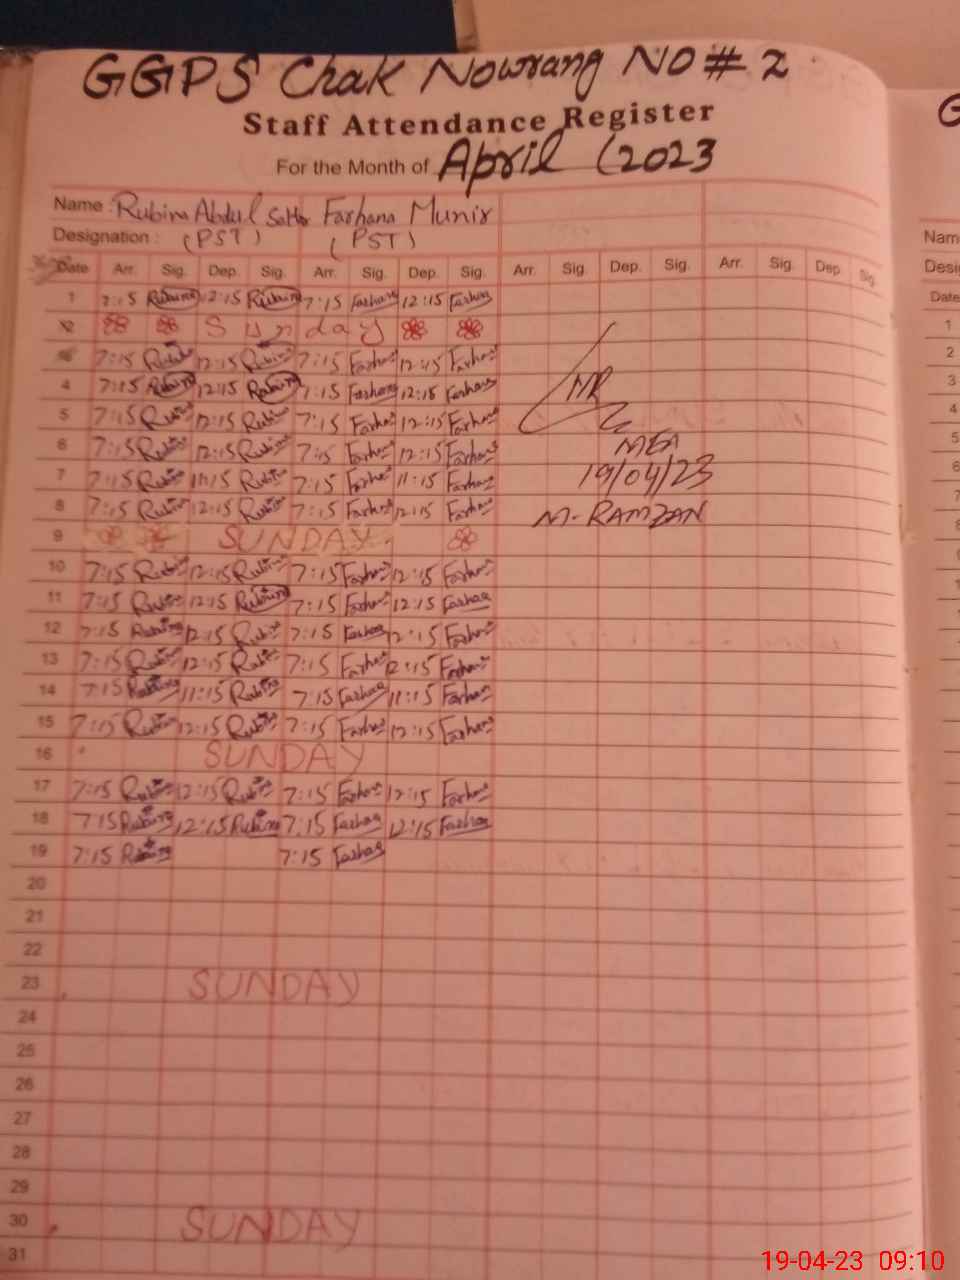 GGPS Chak Nowrang NO # 2
Staff Attendance Register
For the Month of April (2023
Name : Rubina Abdul Sattar Farhana Munir
Designation : (PST) (PST)
Date Arr. Sig. Dep. Sig. Arr. Sig. Dep. Sig. Arr. Sig. Dep. Sig. Arr. Sig. Dep. Sig.
1 7:15 Rubina 12:15 Rubina 7:15 Farhana 12:15 Farhana
2 Sunday
7:15 Rubina 12:15 Rubina 7:15 Farhana 12:15 Farhana
4 7:15 Rubina 12:15 Rubina 7:15 Farhana 12:15 Farhana
5 7:15 Rubina 12:15 Rubina 7:15 Farhana 12:15 Farhana
6 7:15 Rubina 12:15 Rubina 7:15 Farhana 12:15 Farhana
MEA
7 7:15 Rubina 11:15 Rubina 7:15 Farhana 11:15 Farhana
19/04/23
8 7:15 Rubina 12:15 Rubina 7:15 Farhana 12:15 Farhana
M-RAMZAN
9 SUNDAY
10 7:15 Rubina 12:15 Rubina 7:15 Farhana 12:15 Farhana
11 7:15 Rubina 12:15 Rubina 7:15 Farhana 12:15 Farhana
12 7:15 Rubina 12:15 Rubina 7:15 Farhana 12:15 Farhana
13 7:15 Rubina 12:15 Rubina 7:15 Farhana 12:15 Farhana
14 7:15 Rubina 11:15 Rubina 7:15 Farhana 11:15 Farhana
15 7:15 Rubina 12:15 Rubina 7:15 Farhana 12:15 Farhana
16 SUNDAY
17 7:15 Rubina 12:15 Rubina 7:15 Farhana 12:15 Farhana
18 7:15 Rubina 12:15 Rubina 7:15 Farhana 12:15 Farhana
19 7:15 Rubina 7:15 Farhana
20
21
22
23 SUNDAY
24
25
26
27
28
29
30 SUNDAY
31
G
Nam
Desi
Date
1
2
3
4
5
6
7
8
9
10
19-04-23 09:10